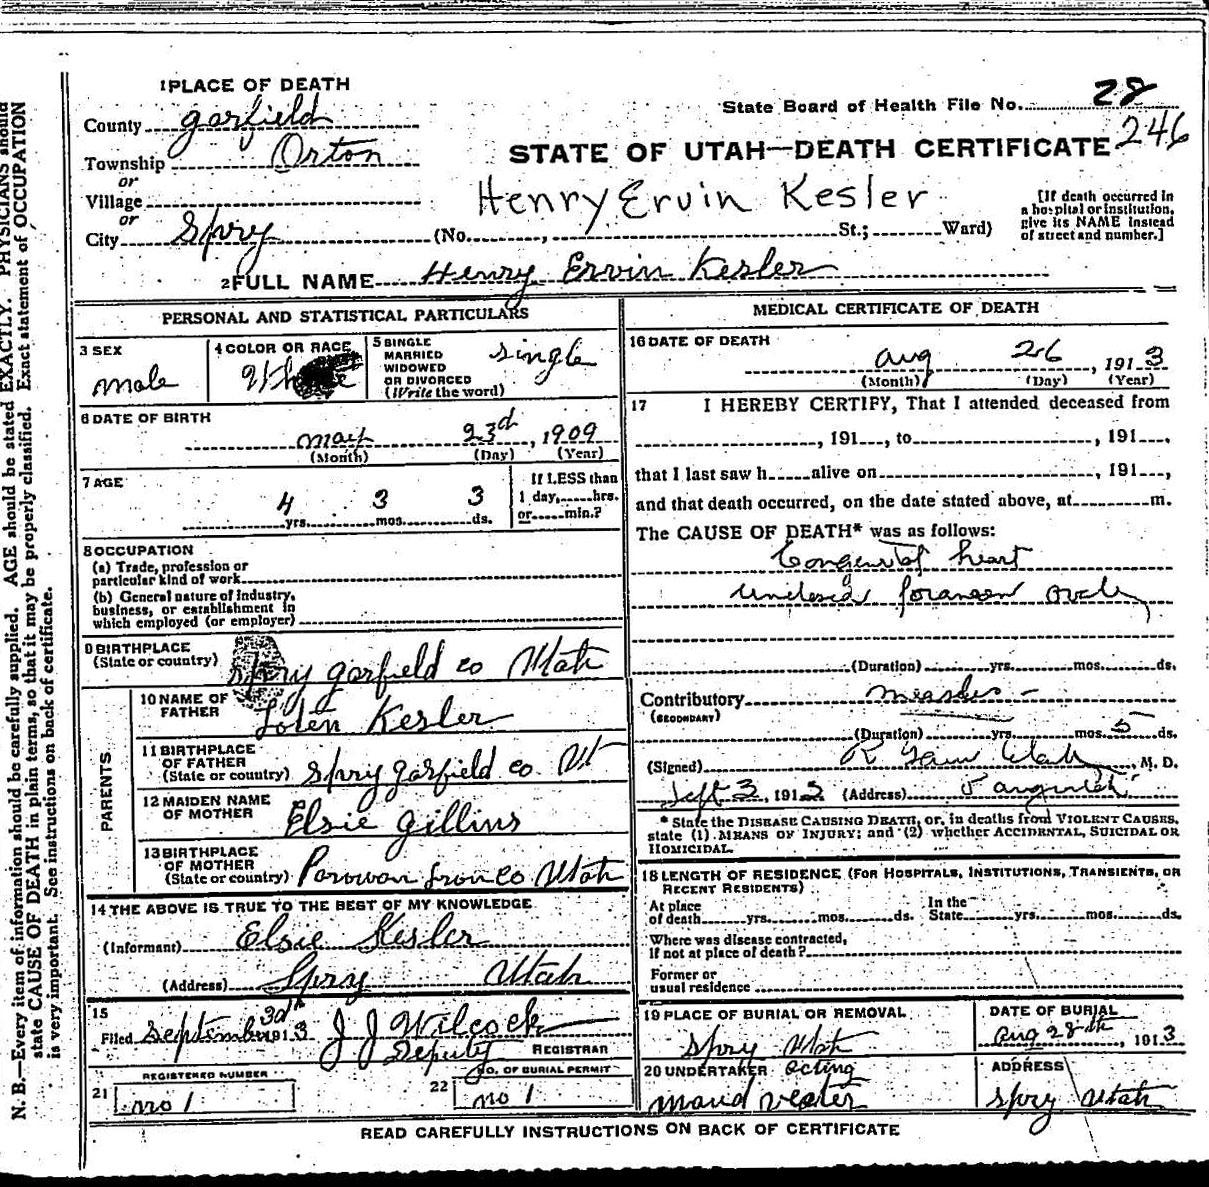 1 PLACE OF DEATH
State Board of Health File No. 28
246
County Garfield
Township Orton
or
Village
or
City Spry
STATE OF UTAH—DEATH CERTIFICATE
Henry Ervin Kesler
(No. , St.; Ward)
[If death occurred in a hospital or institution, give its NAME instead of street and number.]
2 FULL NAME Henry Ervin Kesler
PERSONAL AND STATISTICAL PARTICULARS
3 SEX
male
4 COLOR OR RACE
White
5 SINGLE MARRIED WIDOWED OR DIVORCED (Write the word)
single
6 DATE OF BIRTH
may 23d, 1909
(Month) (Day) (Year)
7 AGE
4 yrs. 3 mos. 3 ds.
If LESS than 1 day, hrs. or min.?
8 OCCUPATION
(a) Trade, profession or particular kind of work
(b) General nature of industry, business, or establishment in which employed (or employer)
9 BIRTHPLACE
(State or country) Spry garfield co Utah
PARENTS
10 NAME OF FATHER Loten Kesler
11 BIRTHPLACE OF FATHER (State or country) Spry garfield co. Ut
12 MAIDEN NAME OF MOTHER Elsie Gillins
13 BIRTHPLACE OF MOTHER (State or country) Parowan Iron Co Utah
14 THE ABOVE IS TRUE TO THE BEST OF MY KNOWLEDGE
(Informant) Elsie Kesler
(Address) Spry Utah
15
Filed September 3dth 1913 J J Wilcock
Deputy REGISTRAR
REGISTERED NUMBER
21 no 1
22 NO. OF BURIAL PERMIT
no 1
MEDICAL CERTIFICATE OF DEATH
16 DATE OF DEATH
aug 26, 1913
(Month) (Day) (Year)
17 I HEREBY CERTIFY, That I attended deceased from
, 191 , to , 191 ,
that I last saw h alive on , 191 ,
and that death occurred, on the date stated above, at m.
The CAUSE OF DEATH* was as follows:
Congenital heart
unclosed foramen ovale
(Duration) yrs. mos. ds.
Contributory measles
(SECONDARY)
(Duration) yrs. mos. 5 ds.
(Signed) R Clark, M. D.
Sept 3, 1913 (Address) Panguitch
* State the DISEASE CAUSING DEATH, or, in deaths from VIOLENT CAUSES, state (1) MEANS OF INJURY; and (2) whether ACCIDENTAL, SUICIDAL OR HOMICIDAL.
18 LENGTH OF RESIDENCE (FOR HOSPITALS, INSTITUTIONS, TRANSIENTS, OR RECENT RESIDENTS)
At place of death yrs. mos. ds. In the State yrs. mos. ds.
Where was disease contracted, if not at place of death?
Former or usual residence
19 PLACE OF BURIAL OR REMOVAL
Spry Utah
DATE OF BURIAL
Aug 28th, 1913
20 UNDERTAKER acting
ADDRESS
Spry Utah
READ CAREFULLY INSTRUCTIONS ON BACK OF CERTIFICATE
N. B.—Every item of information should be carefully supplied. AGE should be stated EXACTLY. PHYSICIANS should
state CAUSE OF DEATH in plain terms, so that it may be properly classified. Exact statement of OCCUPATION
is very important. See instructions on back of certificate.